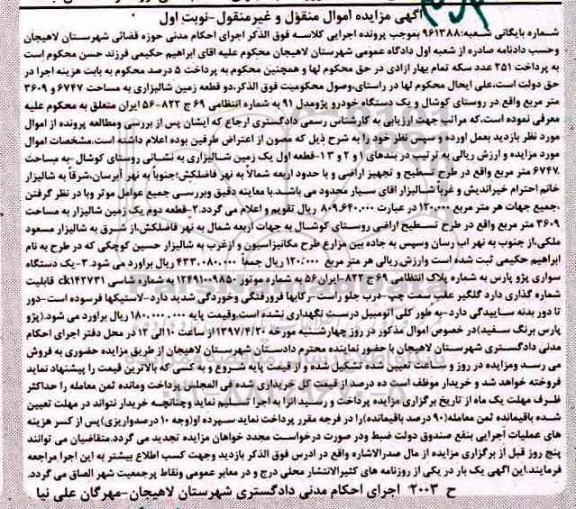 آگهی مزایده اموال منقول و غیرمنقول-نوبت اول
شماره بایگانی شعبه: ۹۶۱۳۸۸ بموجب پرونده اجرایی کلاسه فوق الذکر اجرای احکام مدنی حوزه قضائی شهرستان لاهیجان
وحسب دادنامه صادره از شعبه اول دادگاه عمومی شهرستان لاهیجان محکوم علیه اقای ابراهیم حکیمی فرزند حسن محکوم است
به پرداخت ۲۵۱ عدد سکه تمام بهار ازادی در حق محکوم لها و همچنین محکوم به پرداخت ۵ درصد محکوم به بابت هزینه اجرا در
حق دولت است،علی ایحال محکوم لها در راستای،وصول محکومیت فوق الذکر،دو قطعه زمین شالیزاری به مساحت ۶۷۴۷ و ۳۶۰۹
متر مربع واقع در روستای کوشال و یک دستگاه خودرو پژومدل ۹۱ به شماره انتظامی ۶۹ ج ۸۲۲-۵۶ ایران متعلق به محکوم علیه
معرفی نموده است،که مراتب جهت ارزیابی به کارشناس رسمی دادگستری ارجاع که ایشان پس از بررسی ومطالعه پرونده از اموال
مورد نظر بازدید بعمل اورده و سپس نظر خود را به شرح ذیل که مصون از اعتراض طرفین بوده اعلام داشته است.مشخصات اموال
مورد مزایده و ارزش ریالی به ترتیب در بندهای ۱ و ۲ و ۳ ۱-قطعه اول یک زمین شالیزاری به نشانی روستای کوشال -به مساحت
۶۷۴۷ متر مربع واقع در طرح تسطیح و تجهیز اراضی و با حدود اربعه شمالاً به نهر فاضلکش؛جنوباً به نهر آبرسان،شرقاً به شالیزار
خانم احترام خیراندیش و غرباً شالیزار اقای سیار محدود می باشد.با معاینه دقیق وبررسی جمیع عوامل موثر وبا در نظر گرفتن
جمیع جهات هر متر مربع ۱۲۰.۰۰۰ در عبارت ۸۰۹.۶۴۰.۰۰۰ ریال تقویم و اعلام می گردد.۲-قطعه دوم یک زمین شالیزار به مساحت
۳۶۰۹ متر مربع واقع در طرح تسطیح اراضی روستای کوشال به جهات اربعه شمال به نهر فاضلکش،از شرق به شالیزار مسعود
ملکی،از جنوب به نهر اب رسان وسپس به جاده بین مزارع طرح مکانیزاسیون و ازغرب به شالیزار حسین کوچکی که در طرح به نام
ابراهیم حکیمی ثبت شده است وارزش ریالی هر متر مربع ۱۲۰.۰۰۰ ریال جمعاً ۴۳۳.۰۸۰.۰۰۰ ریال براورد می شود.۳-یک دستگاه
سواری پژو پارس به شماره پلاک انتظامی ۶۹ج ۸۲۲-ایران۵۶ به شماره موتور ۱۲۴۹۱۰۰۹۸۵۰ به شماره شاسی ck۱۴۲۷۳۱ قابلیت
شماره گذاری دارد گلگیر عقب سمت چپ-درب جلو راست-رکابها فرورفتگی وخوردگی شدید دارد-لاستیکها فرسوده است-دور
تا دور بدنه ساییدگی دارد-به طور کلی اتومبیل درست نگهداری نشده است،وقیمت پایه ۱۸۰.۰۰۰.۰۰۰ ریال براورد می شود.(پژو
پارس برنگ سفید)در خصوص اموال مذکور در روز چهارشنبه مورخه ۱۳۹۷/۴/۲۰از ساعت ۱۰ الی ۱۲ در محل دفتر اجرای احکام
مدنی دادگستری شهرستان لاهیجان با حضور نماینده محترم دادستان شهرستان لاهیجان از طریق مزایده حضوری به فروش
می رسد ومزایده در روز و ساعت تعیین شده تشکیل شده و از قیمت پایه شروع و به کسی که بالاترین قیمت را پیشنهاد نماید
فروخته خواهد شد و خریدار موظف است ده درصد از قیمت کل خریداری شده فی المجلس پرداخت ومانده ثمن معامله را حداکثر
ظرف مهلت یک ماه از تاریخ برگزاری مزایده پرداخت و رسید انرا به اجرا تسلیم نماید وچنانچه خریدار نتواند در مهلت تعیین
شده باقیمانده ثمن معامله(۹۰ درصد باقیمانده)را در فرجه مقرر پرداخت نماید سپرده او(وجه ۱۰ درصدواریزی)پس از کسر هزینه
های عملیات اجرایی بنفع صندوق دولت ضبط ودر صورت درخواست مجدد خواهان مزایده تجدید می گردد.متقاضیان می توانند
پنج روز قبل از برگزاری مزایده از مال صدرالاشاره واقع در ادرس فوق الذکر بازدید وجهت کسب اطلاع بیشتر به این اجرا مراجعه
فرمایند.این آگهی یک بار در یکی از روزنامه های کثیرالانتشار محلی درج و در معابر عمومی ونقاط پرجمعیت شهر الصاق می گردد.
ح ۲۰۰۳ اجرای احکام مدنی دادگستری شهرستان لاهیجان-مهرگان علی نیا